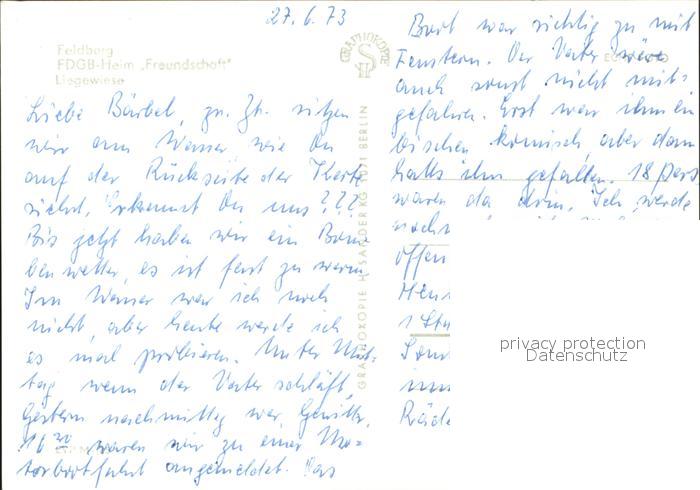 27. 6. 73
Feldberg
FDGB-Heim „Freundschaft"
Liegewiese
Liebe Bärbel, zu. Zt. sitzen
wir am Wasser wie Du
auf der Rückseite der Karte
siehst. Erkennst Du uns???
Bis jetzt haben wir ein Bom-
benwetter, es ist fast zu warm.
Im Wasser war ich noch
nicht, aber heute werde ich
es mal probieren. Unter Mit-
tag wenn der Vater schläft.
Gestern nachmittag war Gewitter.
16 30 waren wir zu einer Mo-
torbootfahrt angemeldet. Das
GRAPHOKOPIE
GRAPHOKOPIE H. SANDER KG 1071 BERLIN
Boot war richtig zu mit
Fenstern. Der Vater wäre
auch sonst nicht mit-
gefahren. Erst war ihm ein
bischen komisch, aber dann
hatts ihm gefallen. 18 Pers
waren da drin. Ich werde
noch
öffen
1 Stu
privacy protection
Datenschutz